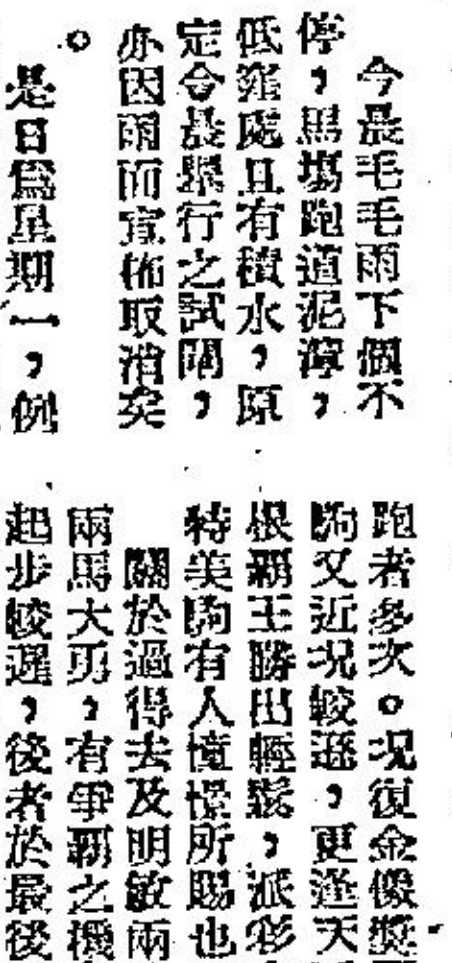 今晨毛毛雨下個不
停，馬塲跑道泥濘，
低窪處且有積水，原
定今晨舉行之試閘，
亦因雨而宣佈取消矣
。
是日爲星期一，例
跑者多次。况復金像獎
駒又近况較遜，更逢天
根霸王勝出輕鬆，派彩
特美駒有人憧憬所賜也
關於過得去及明敏兩
兩馬大勇，有爭霸之機
起步較遲，後者於最後